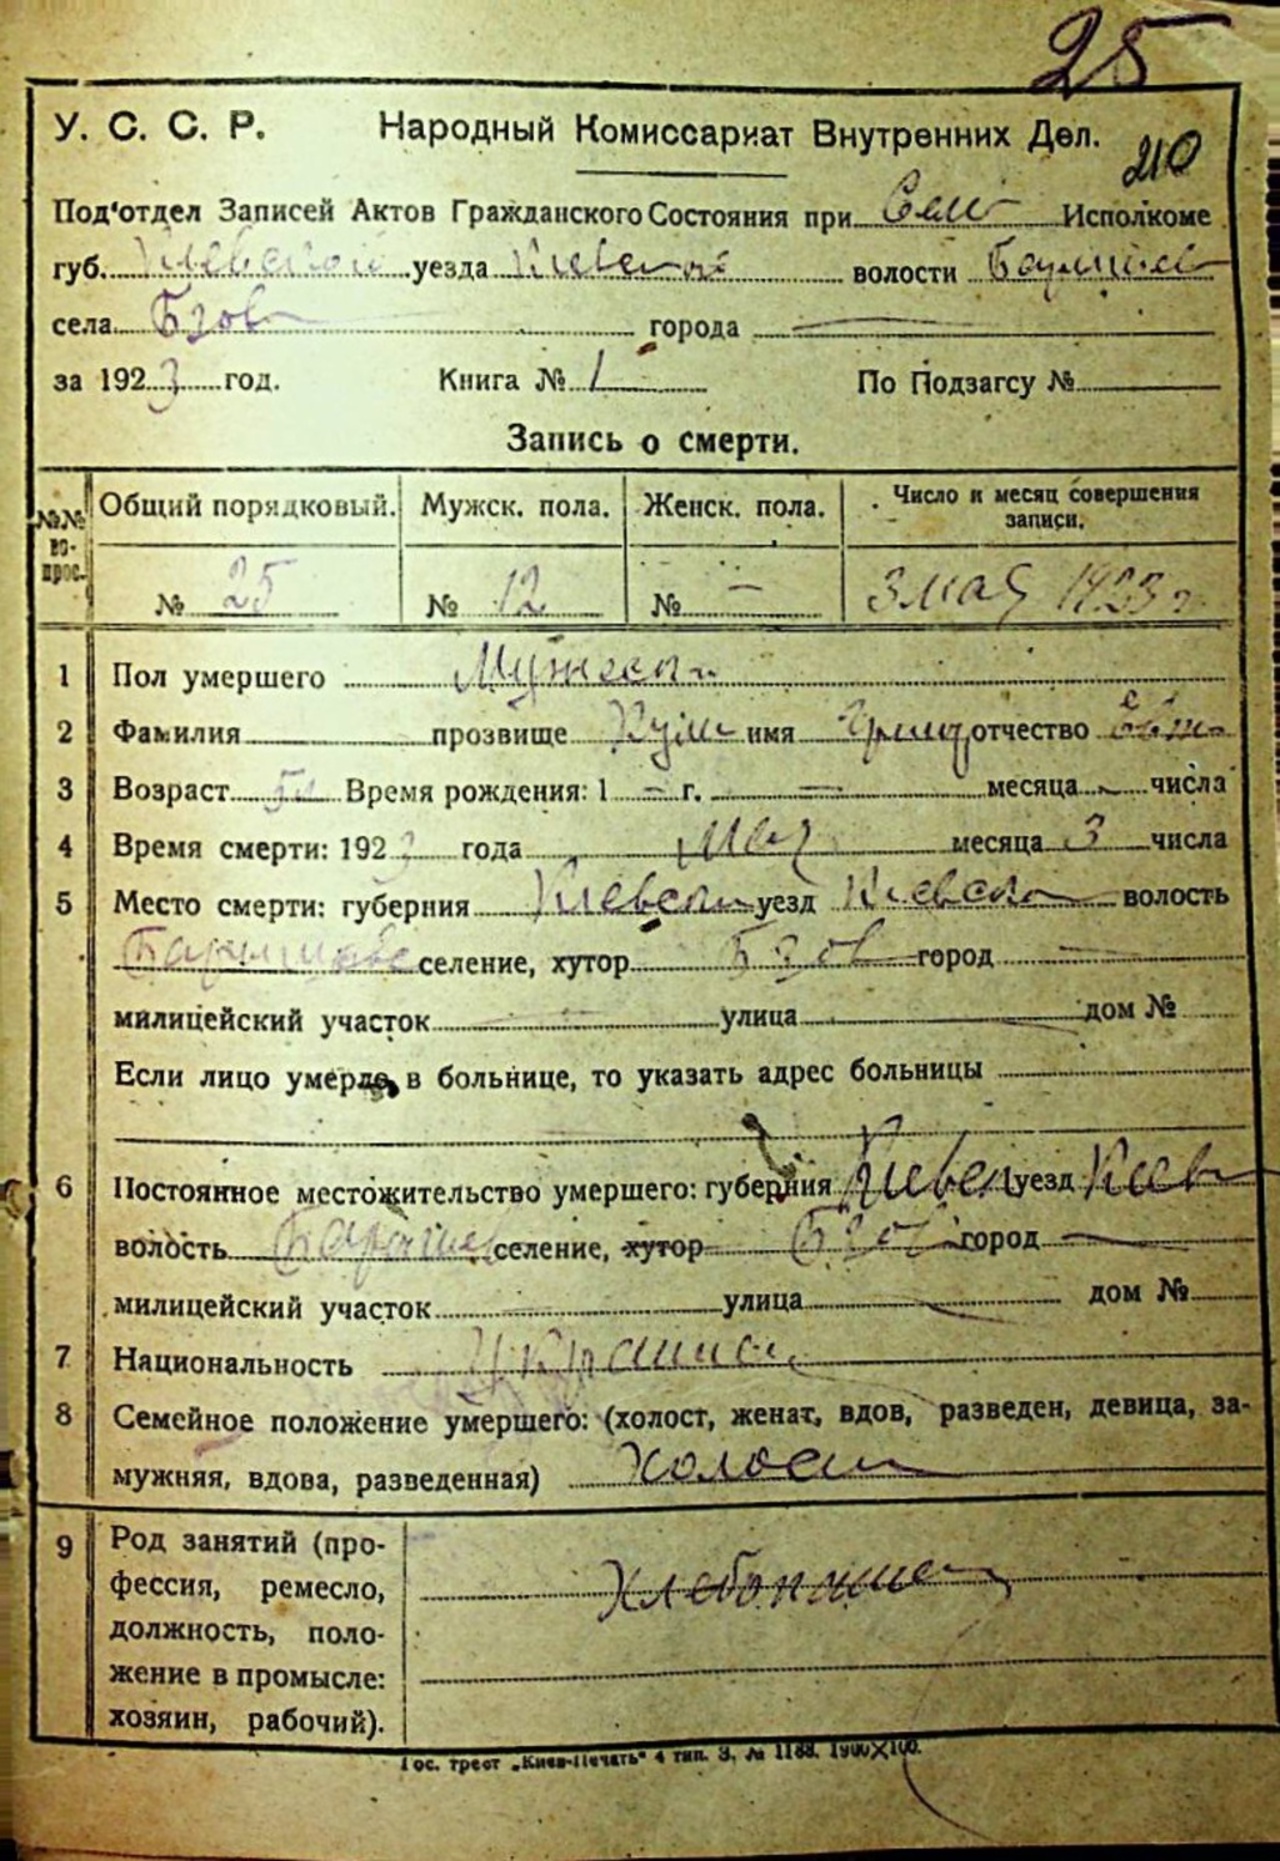 25
У. С. С. Р. Народный Комиссариат Внутренних Дел.
210
Под'отдел Записей Актов Гражданского Состояния при Исполкоме
губ. Киевской уезда Киевской волости
села Бзов города
за 1923 год. Книга № 1 По Подзагсу №
Запись о смерти.
№№ во-прос. Общий порядковый. Мужск. пола. Женск. пола. Число и месяц совершения записи.
№ 25 № 12 № — 3 мая 1923 г.
1 Пол умершего
2 Фамилия прозвище имя отчество
3 Возраст Время рождения: 1 — г. — месяца числа
4 Время смерти: 1923 года мая месяца 3 числа
5 Место смерти: губерния уезд волость
селение, хутор Бзов город —
милицейский участок улица дом №
Если лицо умерло, в больнице, то указать адрес больницы
6 Постоянное местожительство умершего: губерния уезд Киев
волость селение, хутор Бзов город —
милицейский участок улица дом №
7 Национальность
8 Семейное положение умершего: (холост, женат, вдов, разведен, девица, за-
мужняя, вдова, разведенная) Холост
9 Род занятий (про-
фессия, ремесло,
должность, поло-
жение в промысле:
хозяин, рабочий).
Хлебопашец
Гос. трест „Киев-Печать“ 4 тип. З. № 1188. 1900×100.